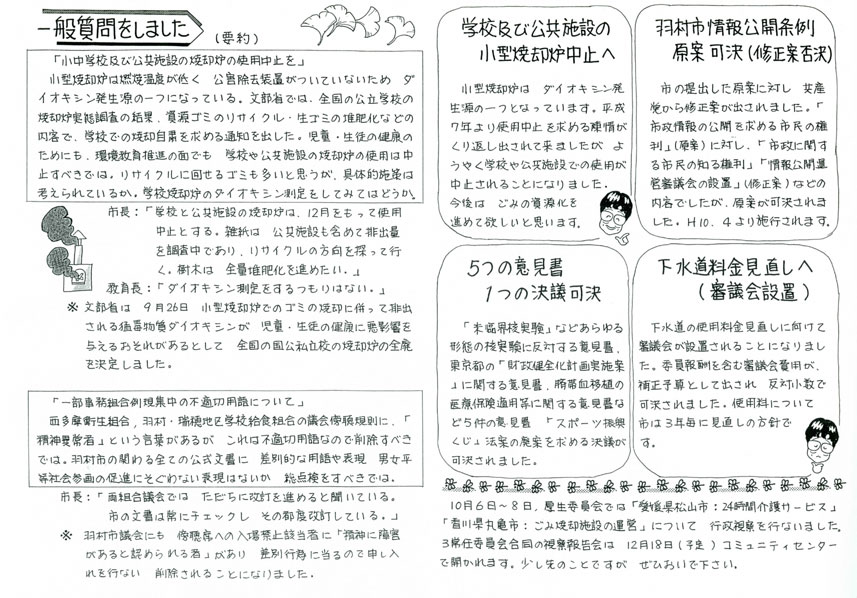 一般質問をしました
(要約)
「小中学校及び公共施設の焼却炉の使用中止を」
小型焼却炉は燃焼温度が低く 公害除去装置がついていないため ダ
イオキシン発生源の一つになっている。文部省では、全国の公立学校の
焼却炉実態調査の結果、資源ゴミのリサイクル・生ゴミの堆肥化などの
内容で、学校での焼却自粛を求める通知を出した。児童・生徒の健康の
ためにも、環境教育推進の面でも 学校や公共施設の焼却炉の使用は中
止すべきでは。リサイクルに回せるゴミも多いと思うが、具体的施策は
考えられているか。学校焼却炉のダイオキシン測定をしてみてはどうか。
市長：「学校と公共施設の焼却炉は、12月をもって使用
中止とする。雑紙は 公共施設も含めて排出量
を調査中であり、リサイクルの方向を探って行
く。樹木は 全量堆肥化を進めたい。」
教育長：「ダイオキシン測定をするつもりはない。」
※ 文部省は 9月26日 小型焼却炉でのゴミの焼却に伴って排出
される猛毒物質ダイオキシンが 児童・生徒の健康に悪影響を
与えるおそれがあるとして 全国の国公私立校の焼却炉の全廃
を決定しました。
「一部事務組合例規集中の不適切用語について」
西多摩衛生組合、羽村・瑞穂地区学校給食組合の議会傍聴規則に、「
精神異常者」という言葉があるが これは不適切用語なので削除すべき
では。羽村市の関わる全ての公式文書に 差別的な用語や表現 男女平
等社会参画の促進にそぐわない表現はないか 総点検をすべきでは。
市長：「両組合議会では ただちに改訂を進めると聞いている。
市の文書は常にチェックし その都度改訂している。」
※ 羽村市議会にも 傍聴席への入場禁止該当者に「精神に障害
があると認められる者」があり 差別行為に当るので申し入
れを行ない 削除されることになりました。
学校及び公共施設の
小型焼却炉中止へ
小型焼却炉は ダイオキシン発
生源の一つとなっています。平成
7年より使用中止を求める陳情が
くり返し出されて来ましたが よ
うやく学校や公共施設での使用が
中止されることになりました。
今後は ごみの資源化を
進めて欲しいと思います。
羽村市情報公開条例
原案可決(修正案否決)
市の提出した原案に対し 共産
党から修正案が出されました。「
市政情報の公開を求める市民の権
利」(原案)に対し、「市政に関す
る市民の知る権利」「情報公開運
営審議会の設置」(修正案)などの
内容でしたが、原案が可決されま
した。H10.4より施行されます。
5つの意見書
1つの決議可決
「未臨界核実験」などあらゆる
形態の核実験に反対する意見書、
東京都の「財政健全化計画実施案
」に関する意見書、臍帯血移植の
医療保険適用等に関する意見書な
ど5件の意見書 「スポーツ振興
くじ」法案の廃案を求める決議が
可決されました。
下水道料金見直しへ
(審議会設置)
下水道の使用料金見直しに向けて
審議会が設置されることになりまし
た。委員報酬を含む審議会費用が、
補正予算として出され 反対小数で
可決されました。使用料について
市は3年毎に見直しの方針で
す。
10月6日～8日、厚生委員会では「愛媛県松山市：24時間介護サービス」
「香川県丸亀市：ごみ焼却施設の運営」について 行政視察を行ないました。
3常任委員会合同の視察報告会は 12月18日(予定) コミュニティセンター
で開かれます。少し先のことですが ぜひおいで下さい。